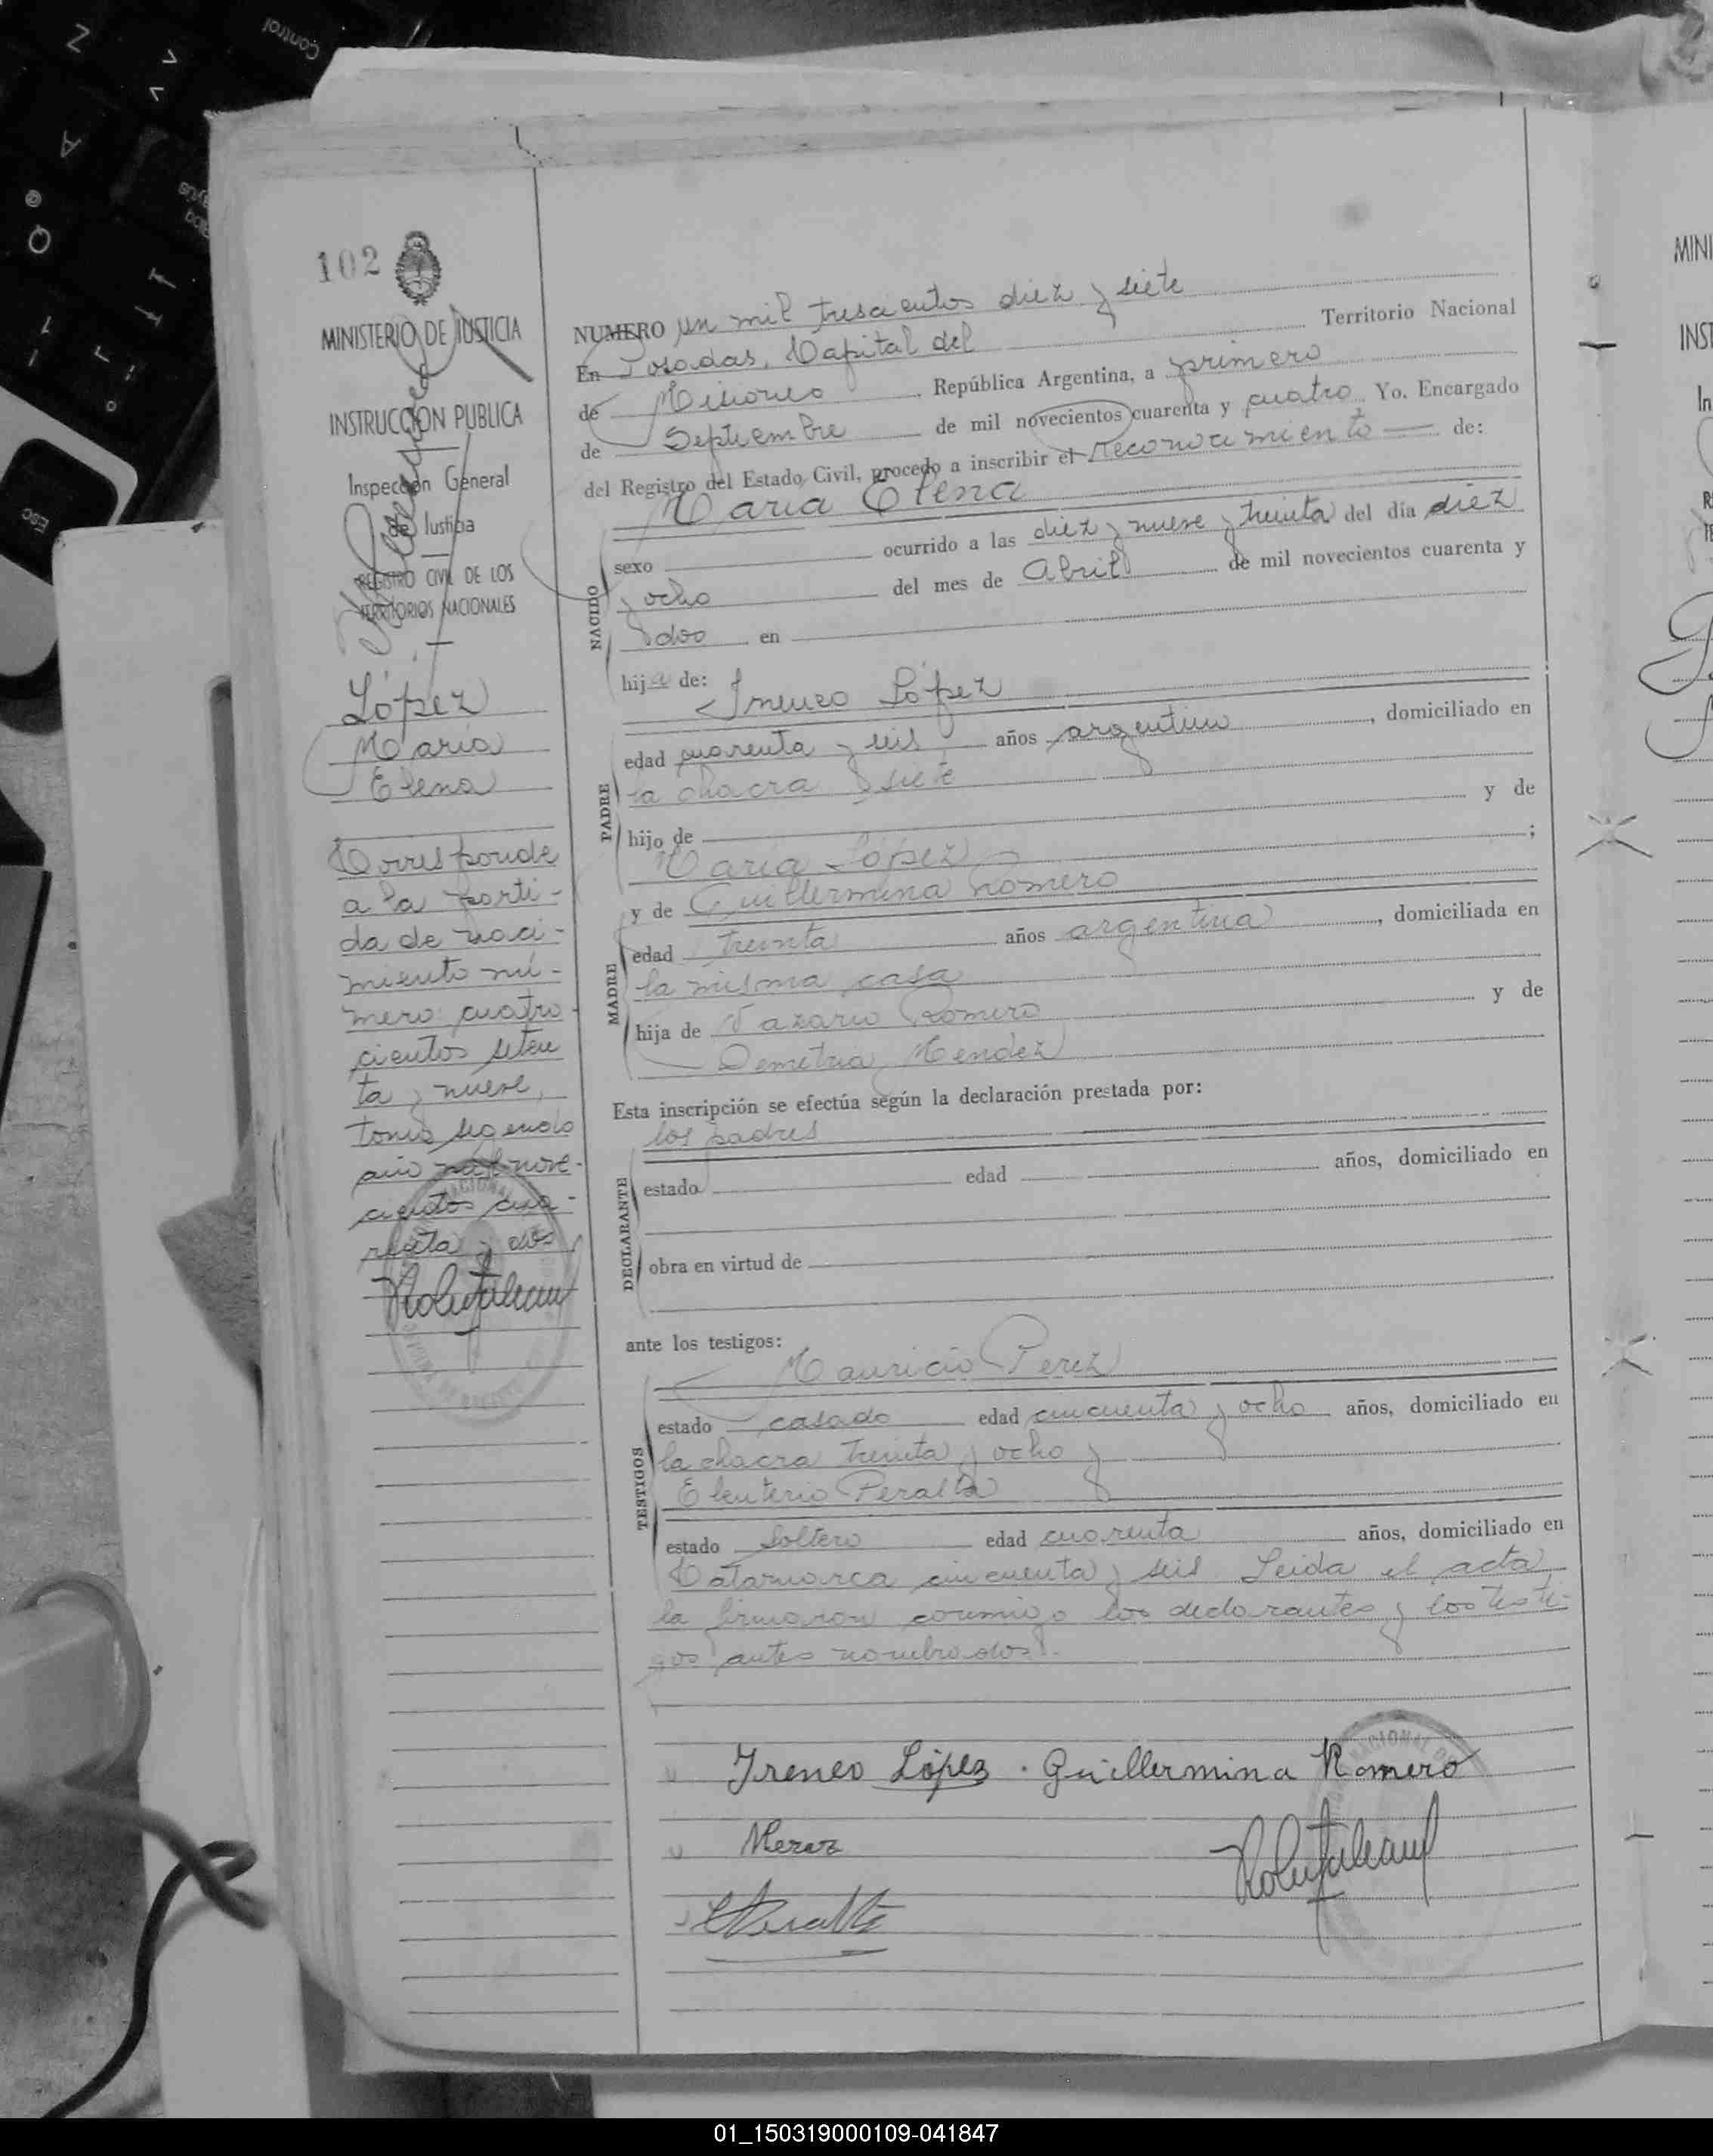 102
MINISTERIO DE JUSTICIA
INSTRUCCION PUBLICA
Inspección General
de Justicia
REGISTRO CIVIL DE LOS
TERRITORIOS NACIONALES
López
Maria
Elena
Corresponde
a la parti-
da de naci-
miento nú-
mero cuatro
cientos seten
ta y nueve,
tomo segundo
año mil nove-
cientos cua-
renta y dos
NUMERO un mil trescientos diez y siete
En Posadas, Capital del Territorio Nacional
de Misiones, República Argentina, a primero
de Septiembre de mil novecientos cuarenta y cuatro Yo. Encargado
del Registro del Estado Civil, procedo a inscribir el Reconocimiento de:
Maria Elena
NACIDO
sexo ocurrido a las diez y nueve y treinta del día diez
y ocho del mes de Abril de mil novecientos cuarenta y
dos en
hija de:
Ireneo López
PADRE
edad cuarenta y seis años argentino, domiciliado en
la chacra siete
hijo de y de
Maria López;
y de Guillermina Romero
MADRE
edad treinta años argentina, domiciliada en
la misma casa
hija de Nazario Romero y de
Demetria Mendez
Esta inscripción se efectúa según la declaración prestada por:
los padres
DECLARANTE
estado edad años, domiciliado en
obra en virtud de
ante los testigos:
Mauricio Perez
TESTIGOS
estado casado edad cincuenta y ocho años, domiciliado en
la chacra treinta y ocho y
Eleuterio Peralta
estado soltero edad cuarenta años, domiciliado en
Catamarca cincuenta y seis. Leida el acta,
la firmaron conmigo los declarantes y los testi-
gos antes nombrados.
Ireneo López . Guillermina Romero
01_150319000109-041847